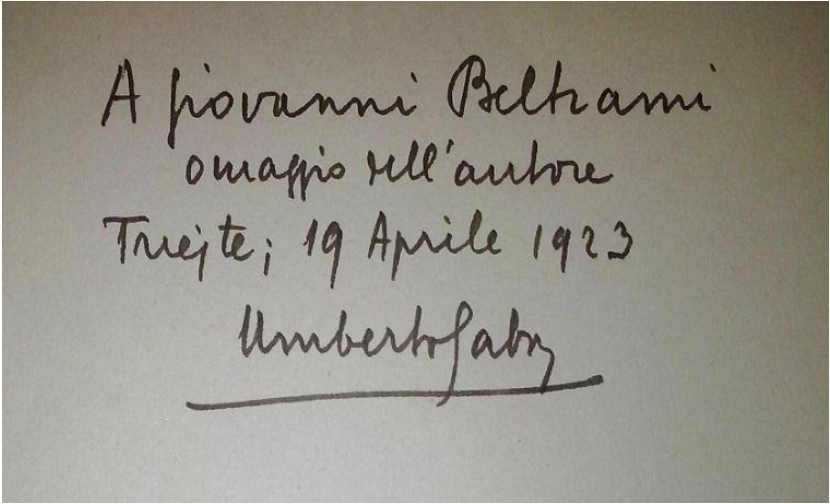 A Giovanni Beltrami
omaggio dell'autore
Trieste; 19 Aprile 1923
Umberto Saba